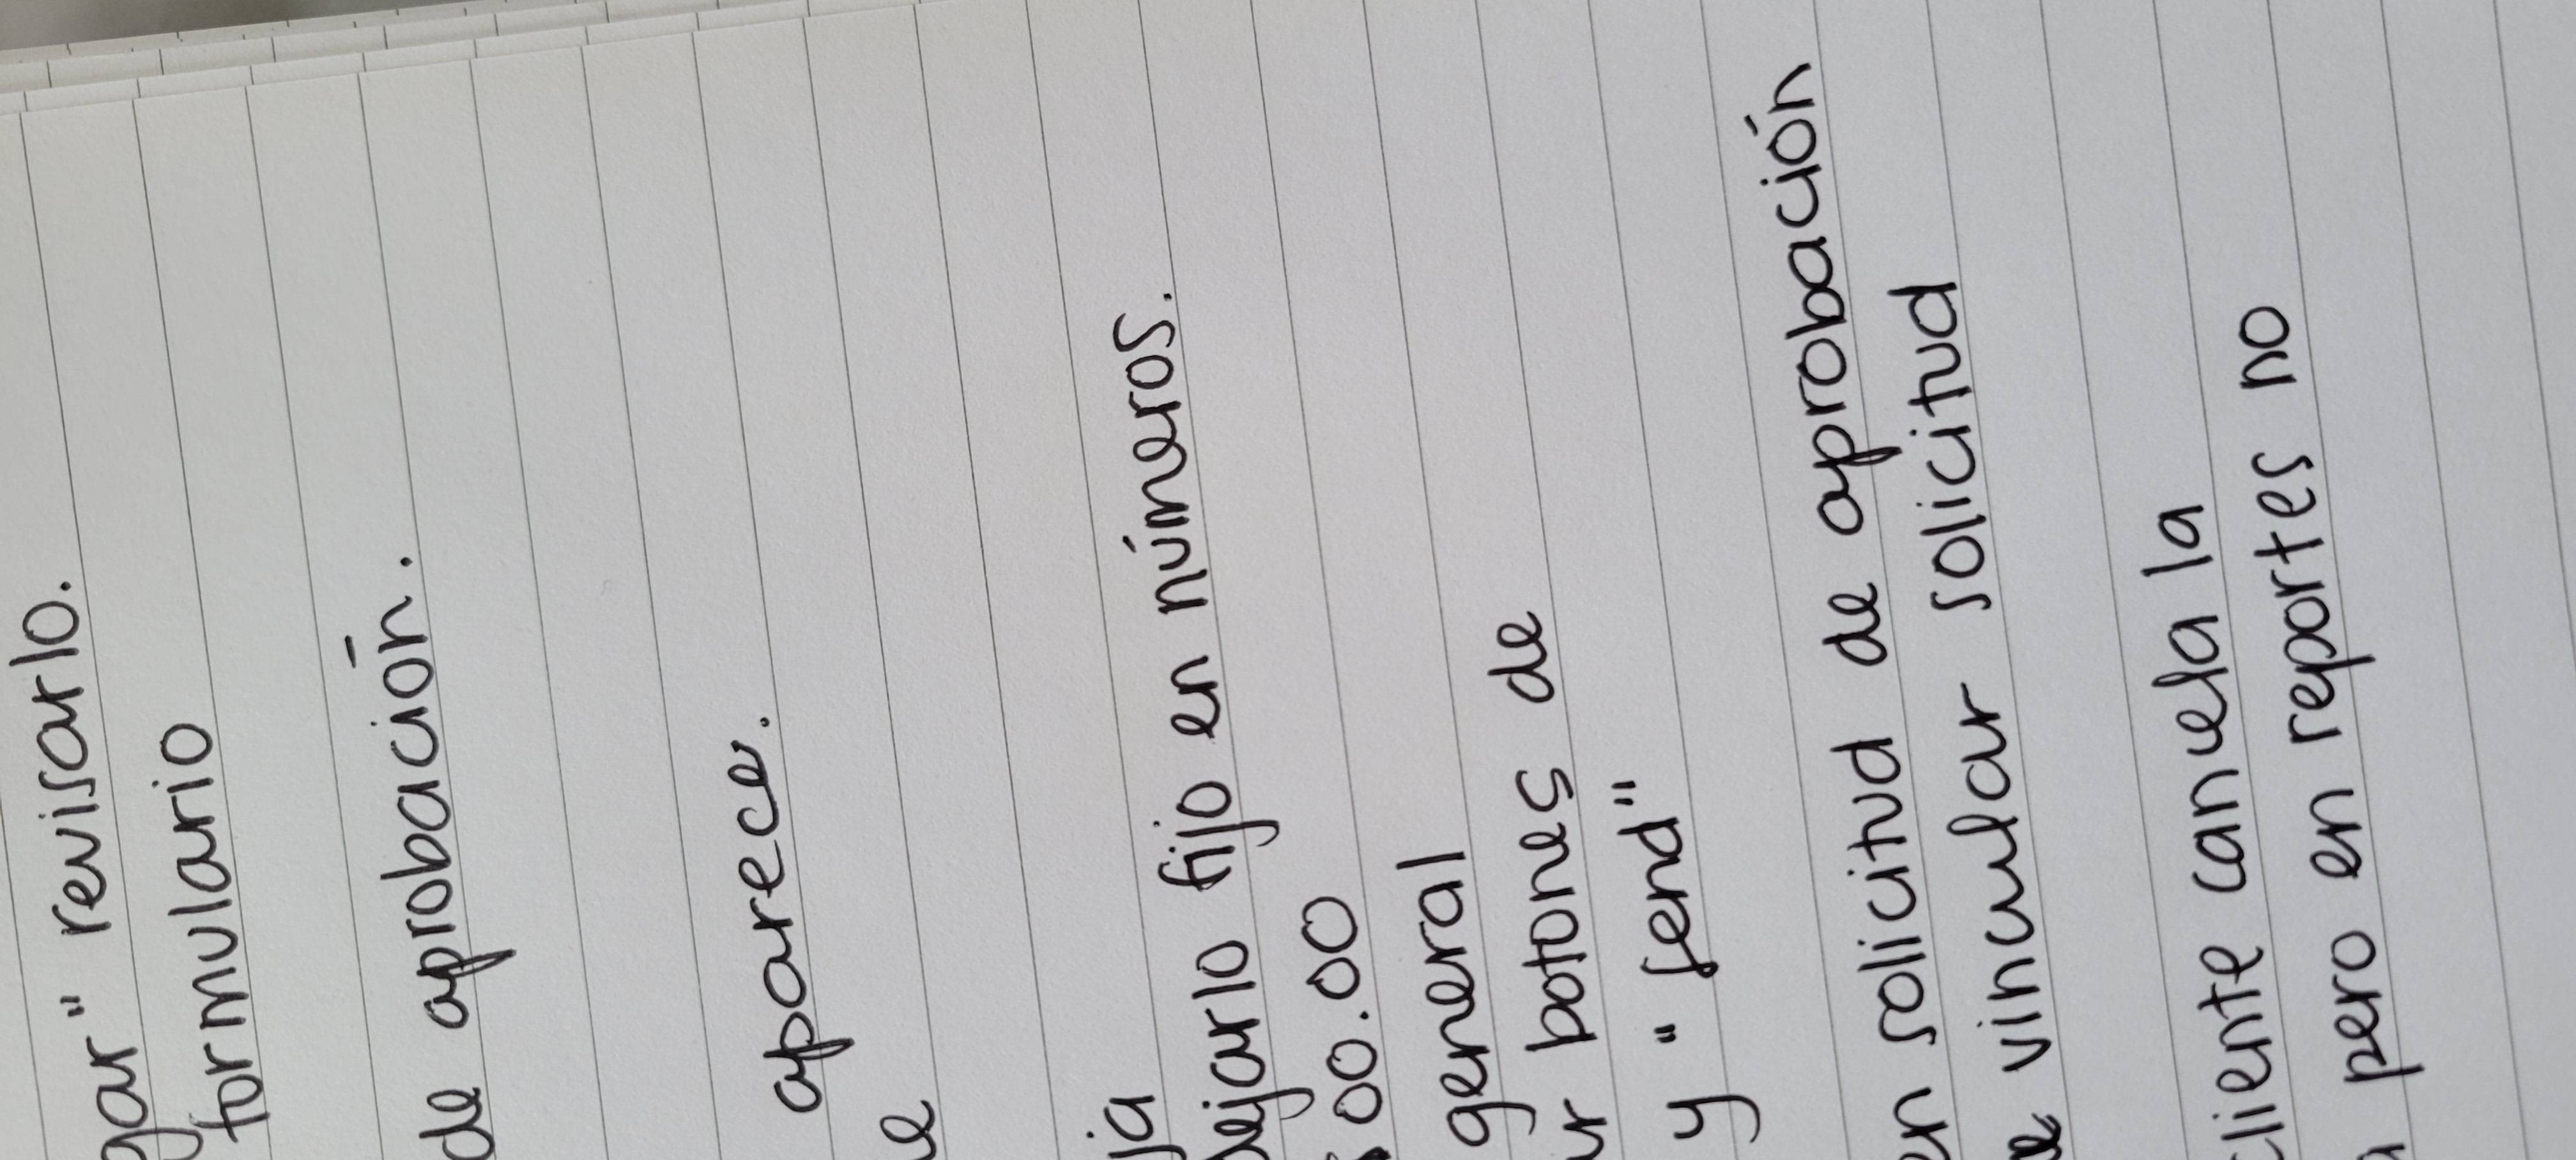 revisarlo.
formulario
de aprobación.
aparece.
dejarlo fijo en números.
00.00
general
botones de
y "send"
en solicitud de aprobación
vincular solicitud
cliente cancela la
pero en reportes no